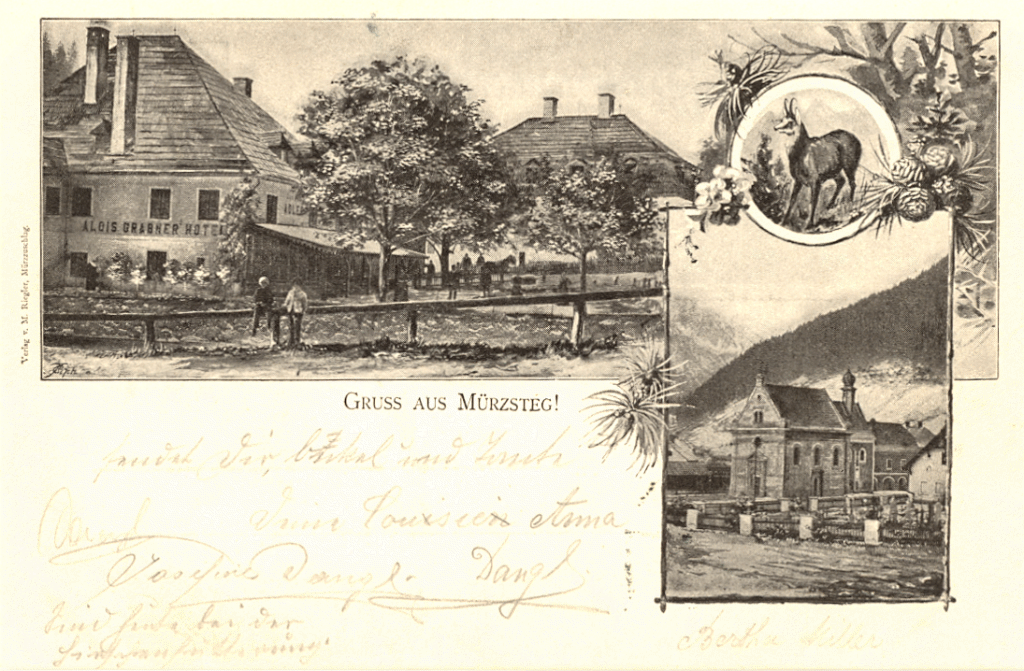 ALOIS GRABNER HOTEL
ADLER
Verlag v. M. Riegler, Mürzzuschlag.
GRUSS AUS MÜRZSTEG!
sendet Dir, Onkel und Tante
Deine Cousine Anna
Josefine Dangl. Dangl
Sind heute bei der
Bertha